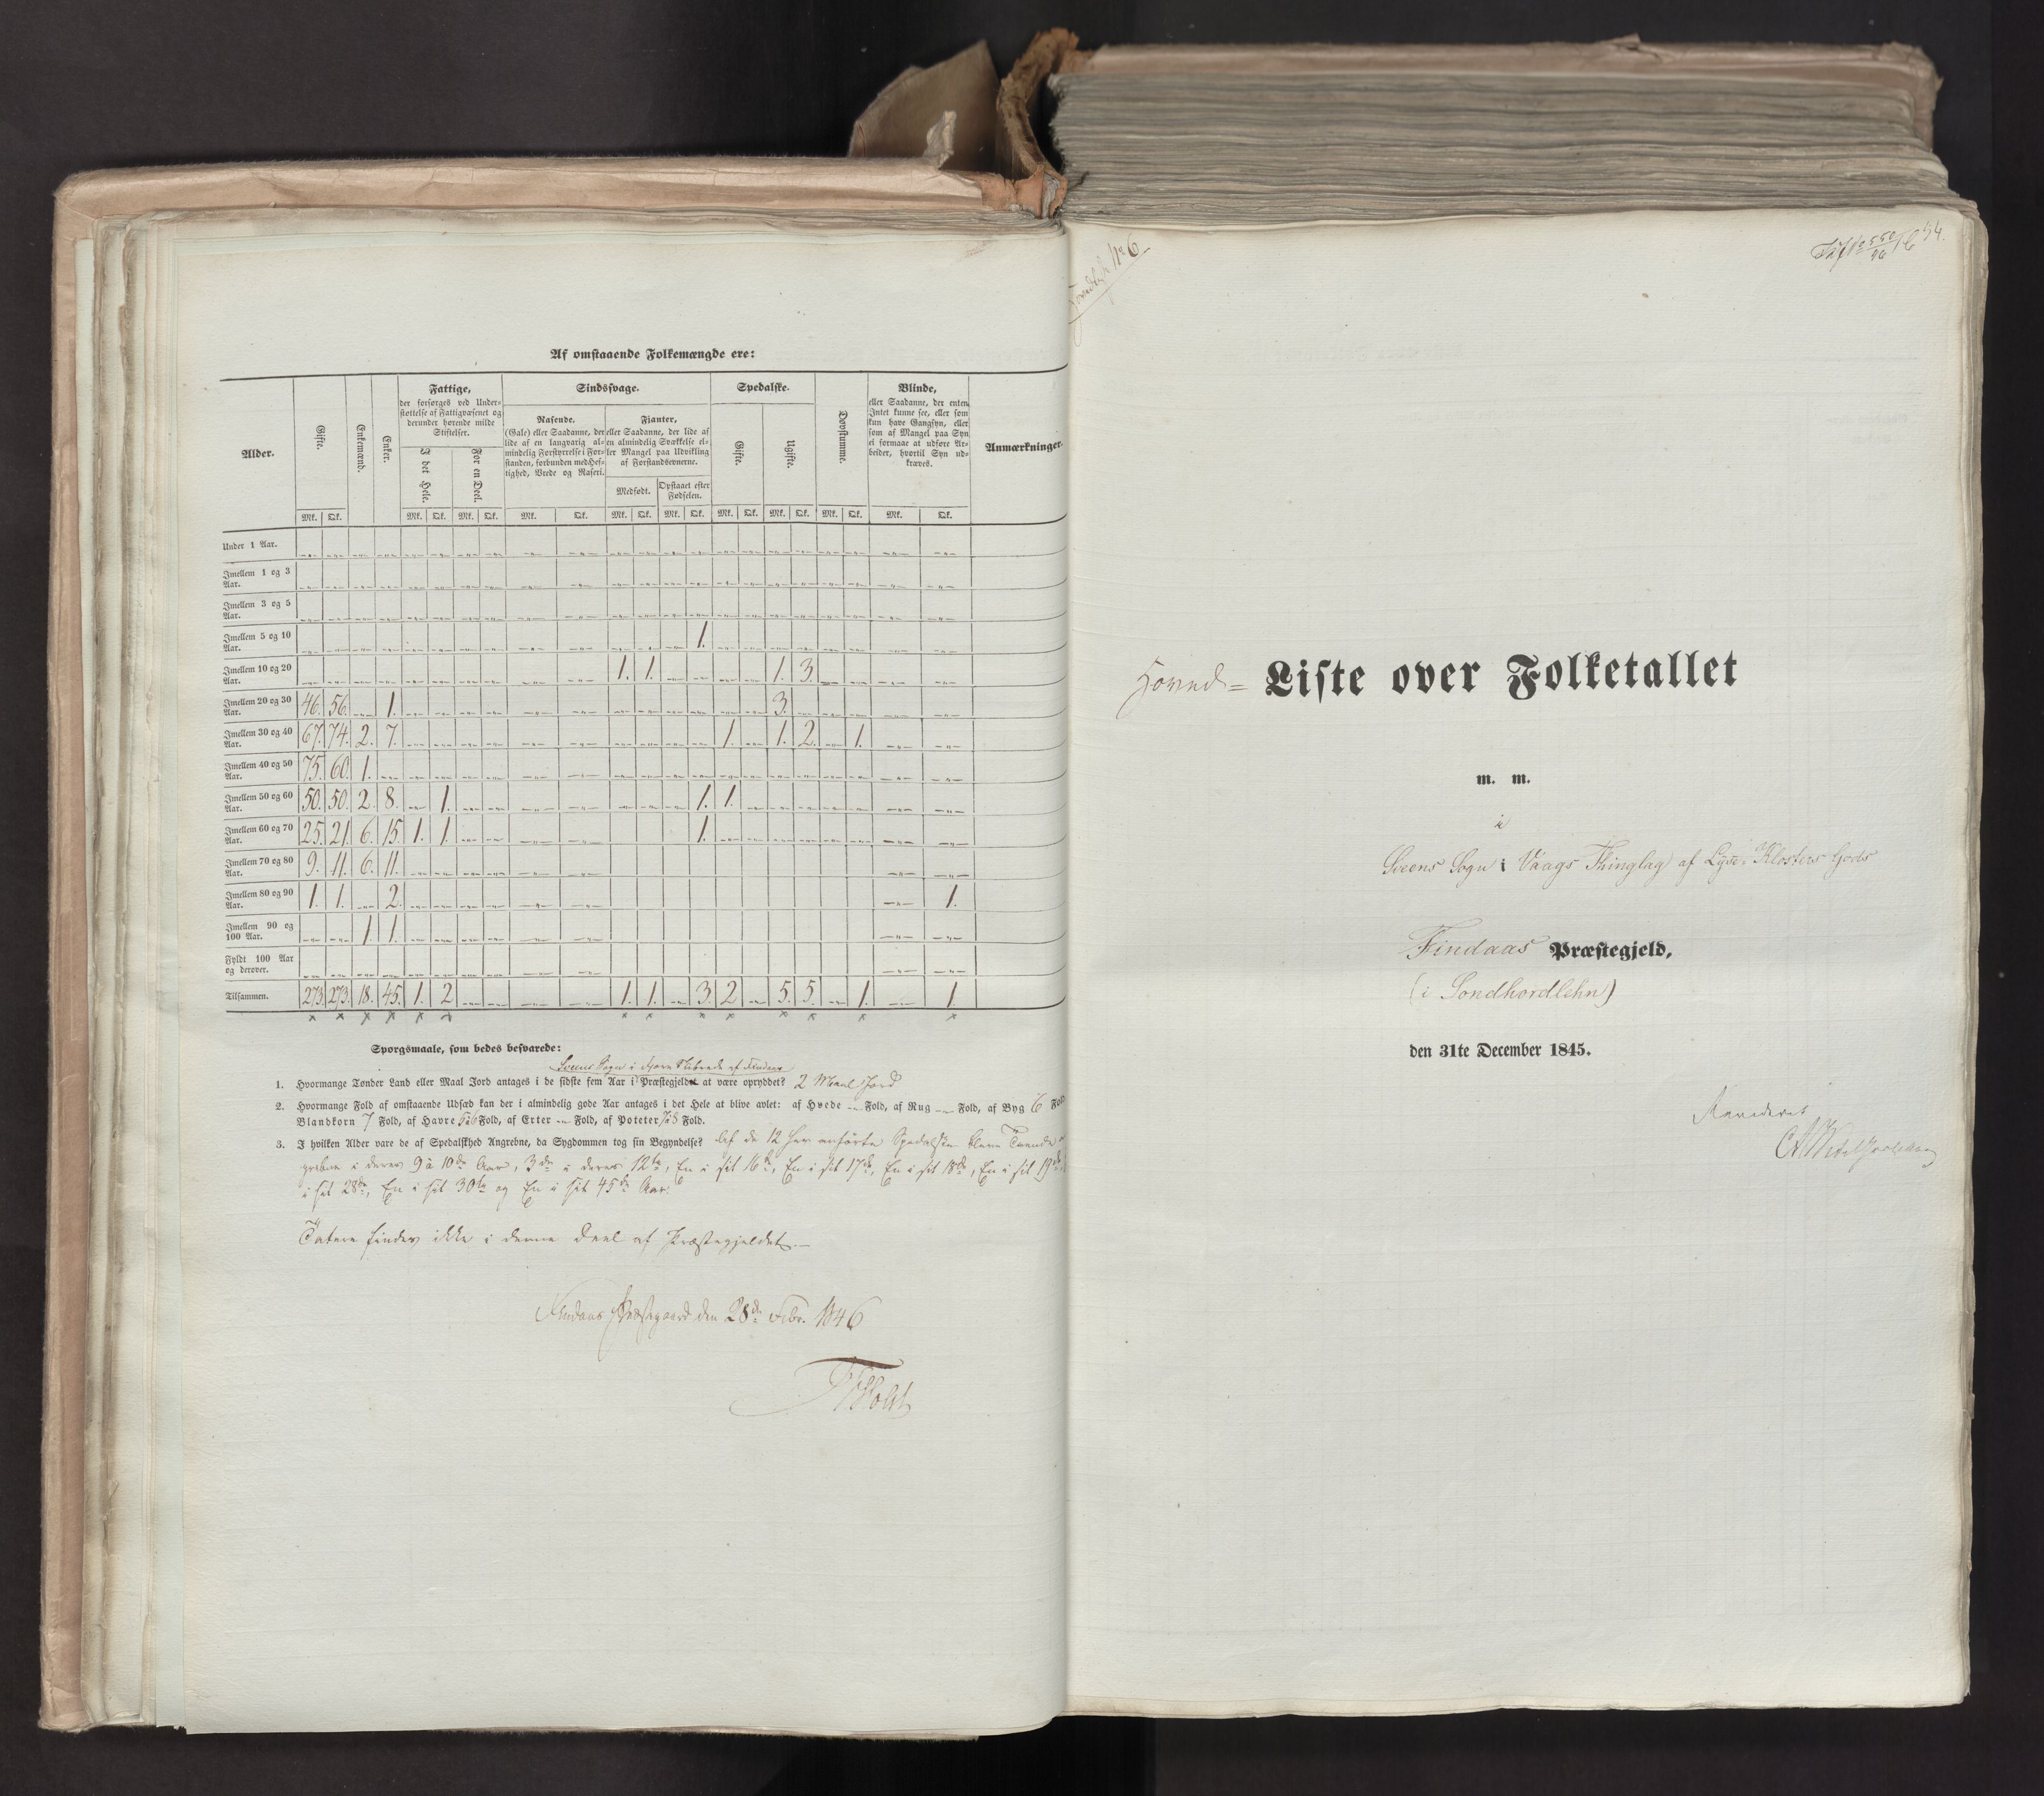 Af omstaaende Folkemængde ere:
Alder.
Gifte.
Enkemænd.
Enker.
Fattige,
der forsørges ved Under-
støttelse af Fattigvæsenet og
derunder hørende milde
Stiftelser.
I det Hele.
For en Deel.
Sindssvage.
Rasende,
(Gale) eller Saadanne, der
lide af en langvarig al-
mindelig Forstyrrelse i For-
standen, forbunden med Hef-
tighed, Vrede og Raseri.
Fjanter,
eller Saadanne, der lide af
en almindelig Svækkelse el-
ler Mangel paa Udvikling
af Forstandsevnerne.
Medfødt.
Opstaaet efter
Fødselen.
Spedalske.
Gifte.
Ugifte.
Døvstumme.
Blinde,
eller Saadanne, der enten
Intet kunne see, eller som
kun have Gangsyn, eller
som af Mangel paa Syn
ei formaae at udføre Ar-
beider, hvortil Syn ud-
kræves.
Anmærkninger.
Mk. Qk. Mk. Qk. Mk. Qk. Mk. Qk. Mk. Qk. Mk. Qk. Mk. Qk. Mk. Qk. Mk. Qk. Mk. Qk.
Under 1 Aar.
Imellem 1 og 3 Aar.
Imellem 3 og 5 Aar.
Imellem 5 og 10 Aar. 1.
Imellem 10 og 20 Aar. 1. 1. 1. 3.
Imellem 20 og 30 Aar. 46. 56. 1. 3.
Imellem 30 og 40 Aar. 67. 74. 2. 7. 1. 1. 2. 1.
Imellem 40 og 50 Aar. 75. 60. 1.
Imellem 50 og 60 Aar. 50. 50. 2. 8. 1. 1. 1.
Imellem 60 og 70 Aar. 25. 21. 6. 15. 1. 1. 1.
Imellem 70 og 80 Aar. 9. 11. 6. 11.
Imellem 80 og 90 Aar. 1. 1. 2. 1.
Imellem 90 og 100 Aar. 1. 1.
Fyldt 100 Aar og derover.
Tilsammen. 273. 273. 18. 45. 1. 2 1. 1. 3. 2 5. 5. 1. 1.
Spørgsmaale, som bedes besvarede:
Sogn i af Findaas
1. Hvormange Tønder Land eller Maal Jord antages i de sidste fem Aar i Præstegjeldet at være opryddet? 2 Maal Jord
2. Hvormange Fold af omstaaende Udsæd kan der i almindelig gode Aar antages i det Hele at blive avlet: af Hvede Fold, af Rug Fold, af Byg 6 Fold
Blandkorn 7 Fold, af Havre Fold, af Erter Fold, af Poteter Fold.
3. I hvilken Alder vare de af Spedalskhed Angrebne, da Sygdommen tog sin Begyndelse? Af de 12 her anførte Spedalske bleve Tvende
grebne i deres 9 à 10de Aar, 3de i deres 12te, En i sit 16de, En i sit 17de, En i sit 18de, En i sit 19de
i sit 28de, En i sit 30te og En i sit 45de Aar.
Tatere findes ikke i denne Deel af Præstegjeldet.
Findaas Præstegaard den 28de Febr. 1846
Holst
No 6
Hoved= Liste over Folketallet
m. m.
i
Sogn i Vaags Thinglag af Lyse Klosters Gods
Findaas Præstegjeld,
(i Söndhordlehn)
den 31te December 1845.
Revideret